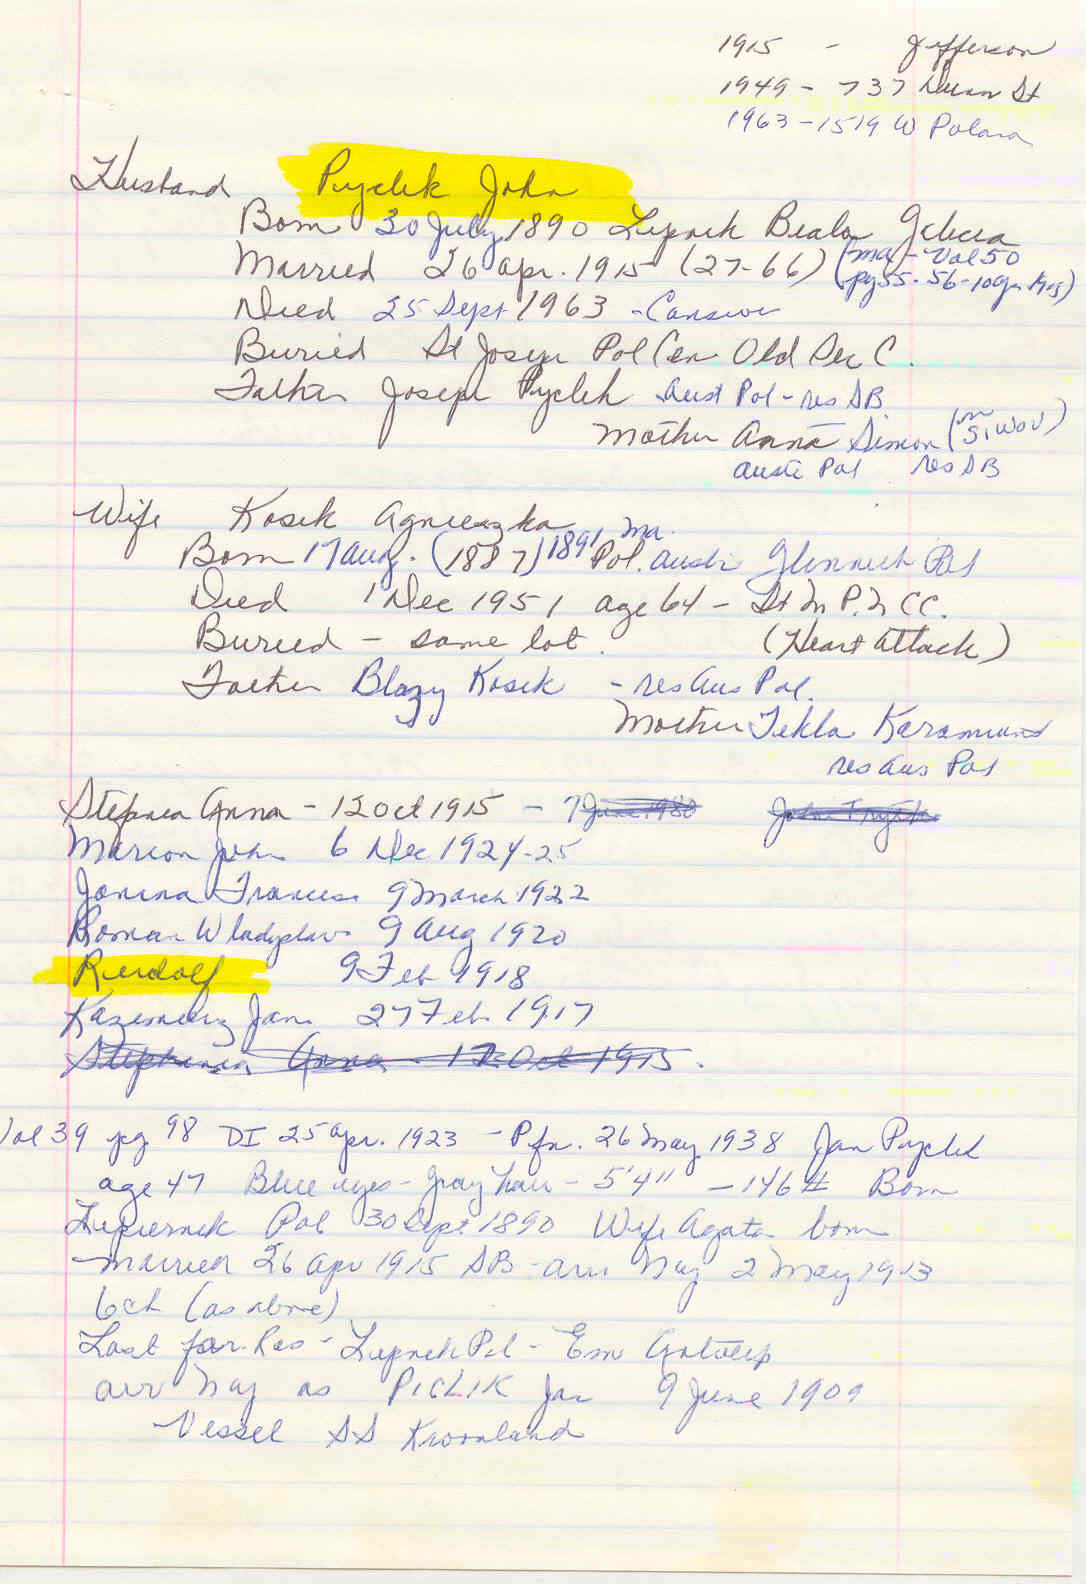 1915 - Jefferson
1949 - 737 Dunn St
1963 - 1519 W Poland
Husband Pyclik John
Born 30 July 1890 Lipnik Biala
Married 26 Apr. 1915 (27-66) (ma - Vol 50
pg 55-56-
Died 25 Sept 1963 - Cancer
Buried St Joseph Pol Cem Old Sec C.
Father Joseph Pyclik Aust Pol - res SB
Mother Anna Simon (m Siwou)
Aust Pol res SB
Wife Kosik Agnieszka
Born 17 Aug. (1887) 1891 ma. Pol. Austr Pol
Died 1 Dec 1951 age 64 - St
Buried - same lot. (Heart Attack)
Father Blazy Kosik - res Aus Pol.
Mother Tekla
res Aus Pol
Anna - 12 Oct 1915 - 7 June 1980
Marion John 6 Dec 1924-25
Janina Frances 9 March 1922
Roman Wladyslaw 9 Aug 1920
Rudolf 9 Feb 1918
Kazimierz Jan 27 Feb 1917
Stephania Anna - 12 Oct 1915.
Vol 39 pg 98 DI 25 Apr. 1923 - 26 May 1938 Jan Pyclik
age 47 Blue eyes - gray hair - 5'4" - 146# Born
Pol 30 Sept 1890 Wife Agata born
- married 26 Apr 1915 SB - arr 2 May 1913
6 ch (as above)
Last for. Res - Lipnik Pol - Em Antwerp
arr as PICLIK Jan 9 June 1909
Vessel SS Kroonland